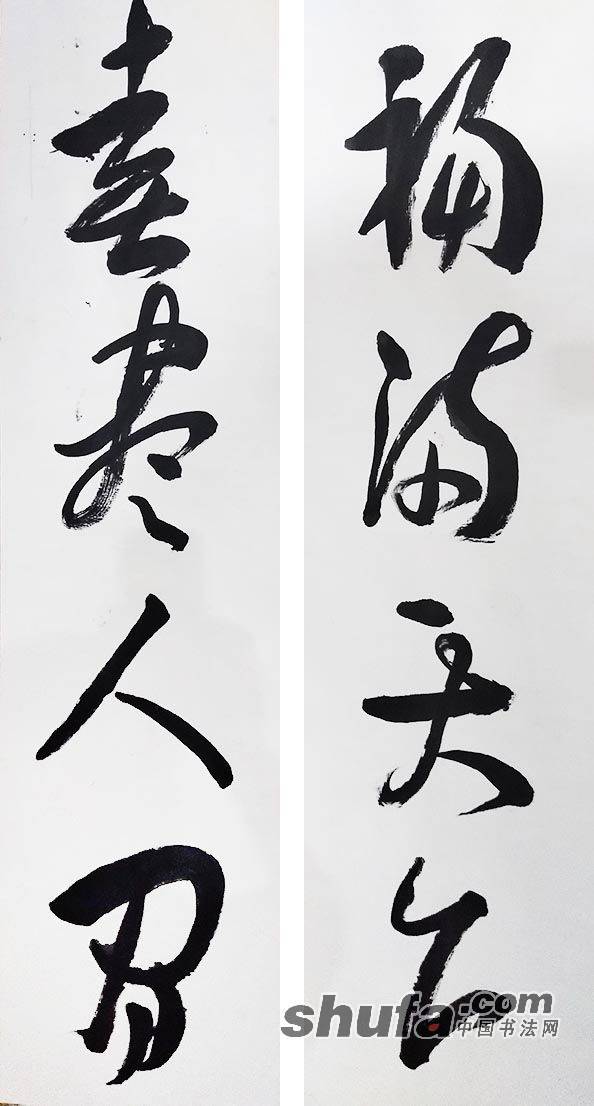 福满天
尽人间
shufa.com
中国书法网